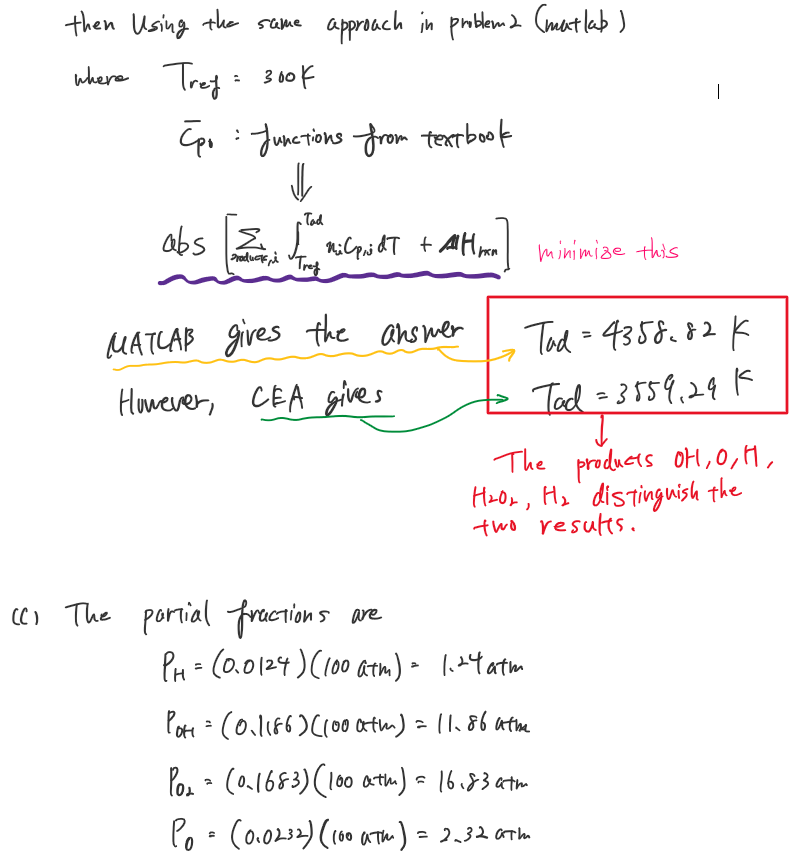 then Using the same approach in problem 2 (matlab)
where Tref = 300K
C̄p, : functions from textbook
⇓
abs [ Σproducts,i ∫Tref^Tad niCp,idT + ΔHrxn ] minimize this
MATLAB gives the answer Tad = 4358.82 K
However, CEA gives Tad = 3559.29 K
The products OH, O, H,
H2O2, H2 distinguish the
two results.
(C) The partial fractions are
PH = (0.0124)(100 atm) = 1.24 atm
POH = (0.1186)(100 atm) = 11.86 atm
PO2 = (0.1683)(100 atm) = 16.83 atm
PO = (0.0232)(100 atm) = 2.32 atm